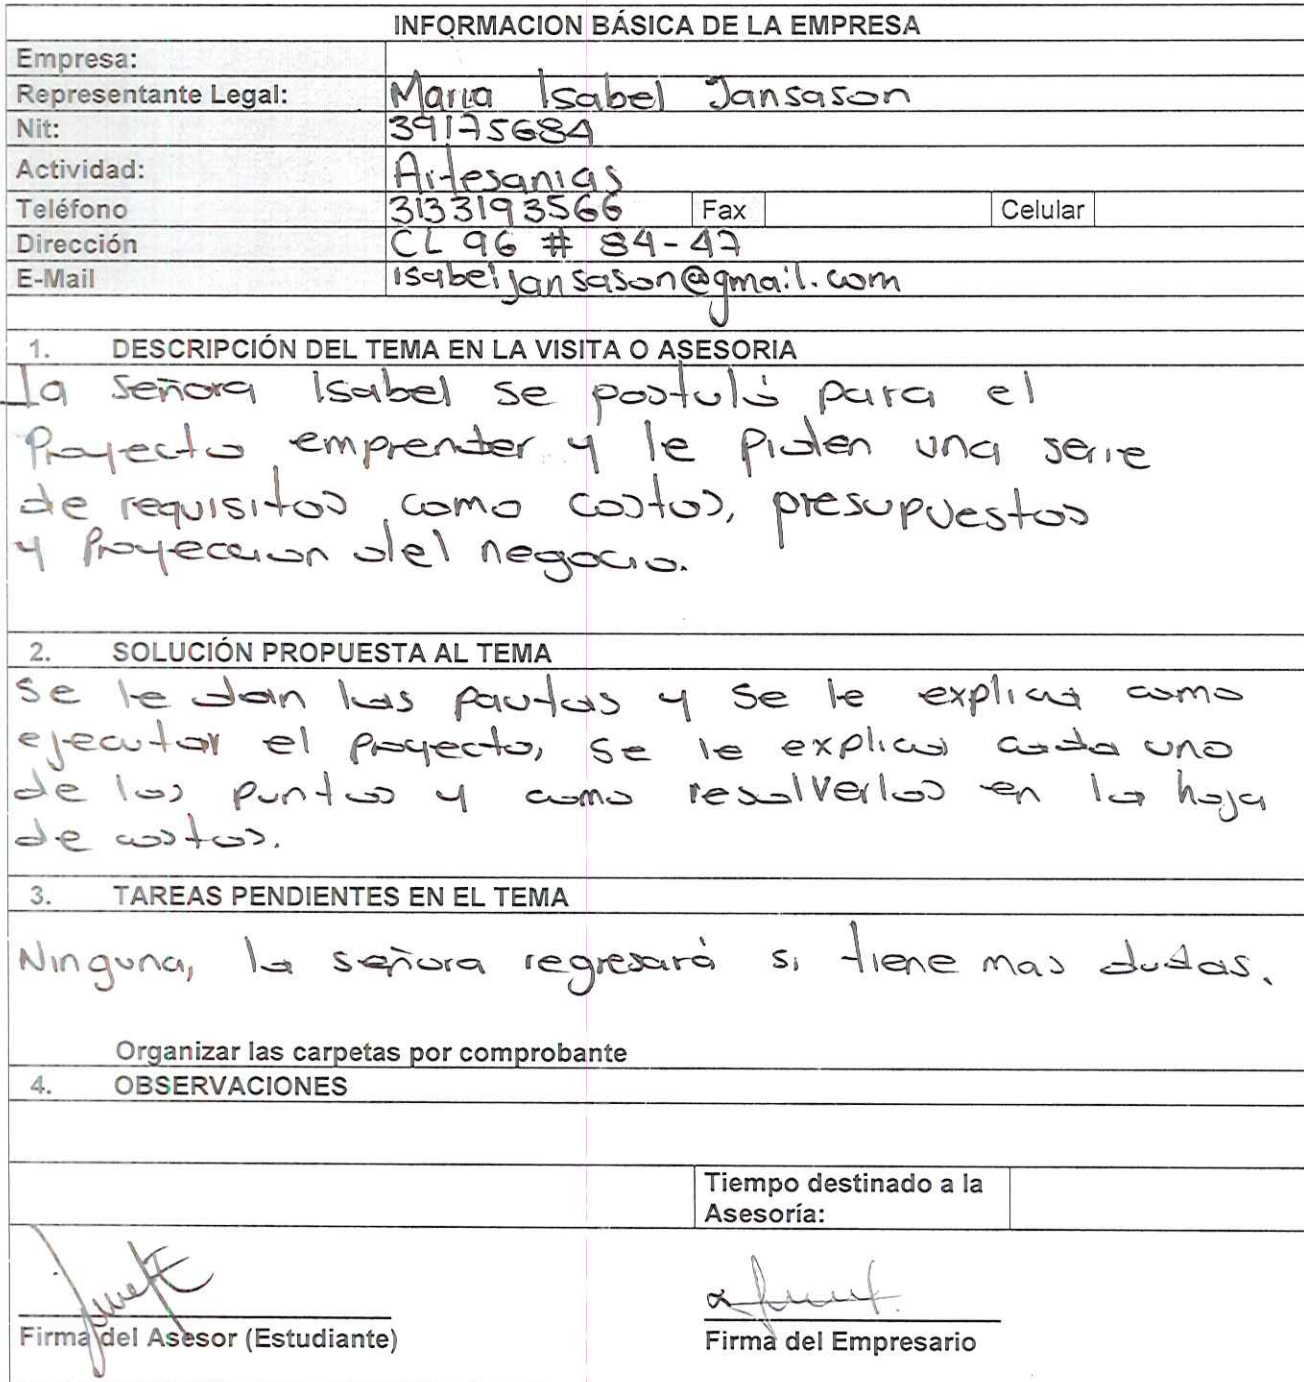 INFORMACION BÁSICA DE LA EMPRESA
Empresa:
Representante Legal: Maria Isabel Jansason
Nit: 39175684
Actividad: Artesanias
Teléfono 3133193566 Fax Celular
Dirección CL 96 # 84-47
E-Mail isabeljansason@gmail.com
1. DESCRIPCIÓN DEL TEMA EN LA VISITA O ASESORIA
La señora Isabel se postuló para el
Proyecto emprender y le piden una serie
de requisitos como costos, presupuestos
y Proyeccion del negocio.
2. SOLUCIÓN PROPUESTA AL TEMA
Se le dan las pautas y se le explica como
ejecutar el proyecto, se le explica cada uno
de los puntos y como resolverlos en la hoja
de costos.
3. TAREAS PENDIENTES EN EL TEMA
Ninguna, la señora regresará si tiene mas dudas.
Organizar las carpetas por comprobante
4. OBSERVACIONES
Tiempo destinado a la
Asesoría:
Firma del Asesor (Estudiante) Firma del Empresario